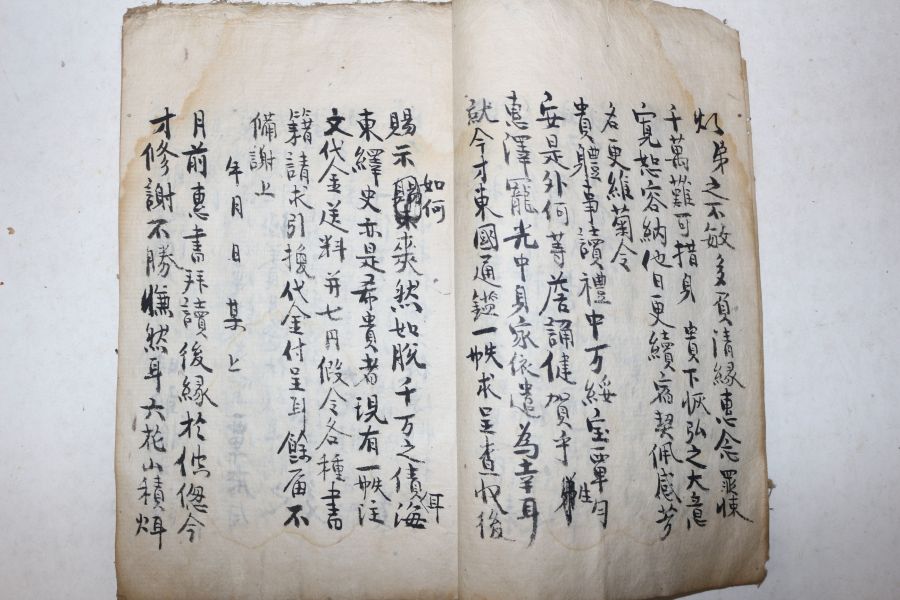 弟之不敏多負清緣惠念罪悚
千萬難可措身 貴下恢弘之大意
寬恕容納他日更續宿契佩感芳
名更維菊令
貴體事讀禮中万綏宝覃勻
安是外何等 誦健賀乎 生
惠澤罷光中身家依遣為幸耳
就今才東國通鑑一帙求呈查收後
賜示 如何 來爽然如脫千万之債海 耳
東繹史亦是希貴者現有一帙注
文代金送料并七円假令各種書
籍請求引換代金付呈耳餘届不
備謝上
年月日 某 上
月前惠書拜讀後緣於倥偬今
才修謝不勝慊然耳六花小積